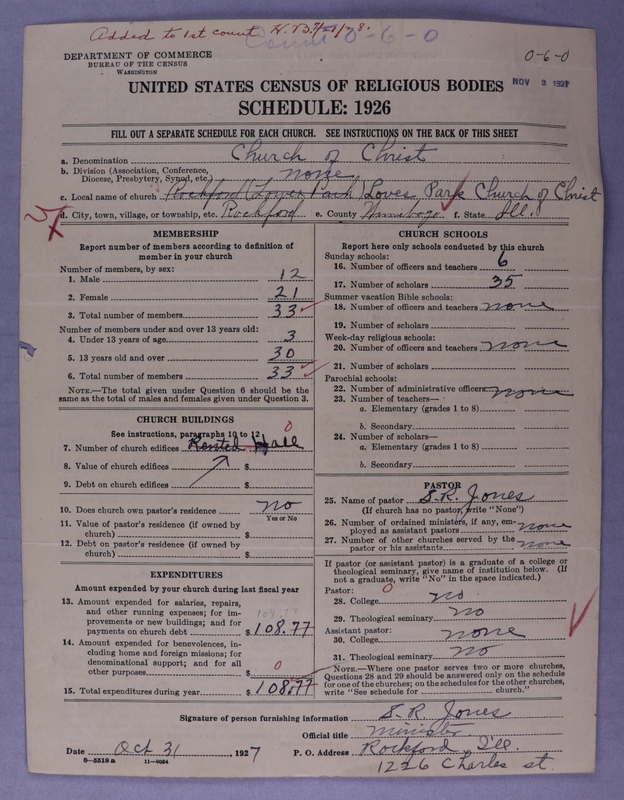 Added to 1st count H.B. 7/21/28.
Count 0-6-0
0-6-0
DEPARTMENT OF COMMERCE
BUREAU OF THE CENSUS
WASHINGTON
NOV 3 1927
UNITED STATES CENSUS OF RELIGIOUS BODIES
SCHEDULE: 1926
FILL OUT A SEPARATE SCHEDULE FOR EACH CHURCH. SEE INSTRUCTIONS ON THE BACK OF THIS SHEET
a. Denomination Church of Christ
b. Division (Association, Conference, Diocese, Presbytery, Synod, etc.) none
c. Local name of church Rockford (Loves Park) Loves Park Church of Christ
d. City, town, village, or township, etc. Rockford e. County Winnebago f. State Ill.
MEMBERSHIP
Report number of members according to definition of
member in your church
Number of members, by sex:
1. Male 12
2. Female 21
3. Total number of members 33
Number of members under and over 13 years old:
4. Under 13 years of age 3
5. 13 years old and over 30
6. Total number of members 33
NOTE.—The total given under Question 6 should be the
same as the total of males and females given under Question 3.
CHURCH BUILDINGS
See instructions, paragraphs 10 to 12
0
7. Number of church edifices Rented Hall
8. Value of church edifices $
9. Debt on church edifices $
10. Does church own pastor's residence no
Yes or No
11. Value of pastor's residence (if owned by
church) $
12. Debt on pastor's residence (if owned by
church) $
EXPENDITURES
Amount expended by your church during last fiscal year
13. Amount expended for salaries, repairs,
and other running expenses; for im- 108.77
provements or new buildings; and for
payments on church debt $108.77
14. Amount expended for benevolences, in-
cluding home and foreign missions; for
denominational support; and for all 0
other purposes $
15. Total expenditures during year $108.77
CHURCH SCHOOLS
Report here only schools conducted by this church
Sunday schools:
16. Number of officers and teachers 6
17. Number of scholars 35
Summer vacation Bible schools:
18. Number of officers and teachers none
19. Number of scholars
Week-day religious schools:
20. Number of officers and teachers none
21. Number of scholars
Parochial schools:
22. Number of administrative officers none
23. Number of teachers—
a. Elementary (grades 1 to 8)
b. Secondary
24. Number of scholars—
a. Elementary (grades 1 to 8)
b. Secondary
PASTOR
25. Name of pastor S.R. Jones
(If church has no pastor, write "None")
26. Number of ordained ministers, if any, em-
ployed as assistant pastors none
27. Number of other churches served by the
pastor or his assistants none
If pastor (or assistant pastor) is a graduate of a college or
theological seminary, give name of institution below. (If
not a graduate, write "No" in the space indicated.)
Pastor: 0
28. College no
29. Theological seminary no
Assistant pastor:
30. College none
31. Theological seminary no
NOTE.—Where one pastor serves two or more churches,
Questions 28 and 29 should be answered only on the schedule
for one of the churches; on the schedules for the other churches,
write "See schedule for church."
Signature of person furnishing information S.R. Jones
Official title minister
Date Oct 31, 1927 P. O. Address Rockford, Ill.
8—5518a 11—9084
1226 Charles st.